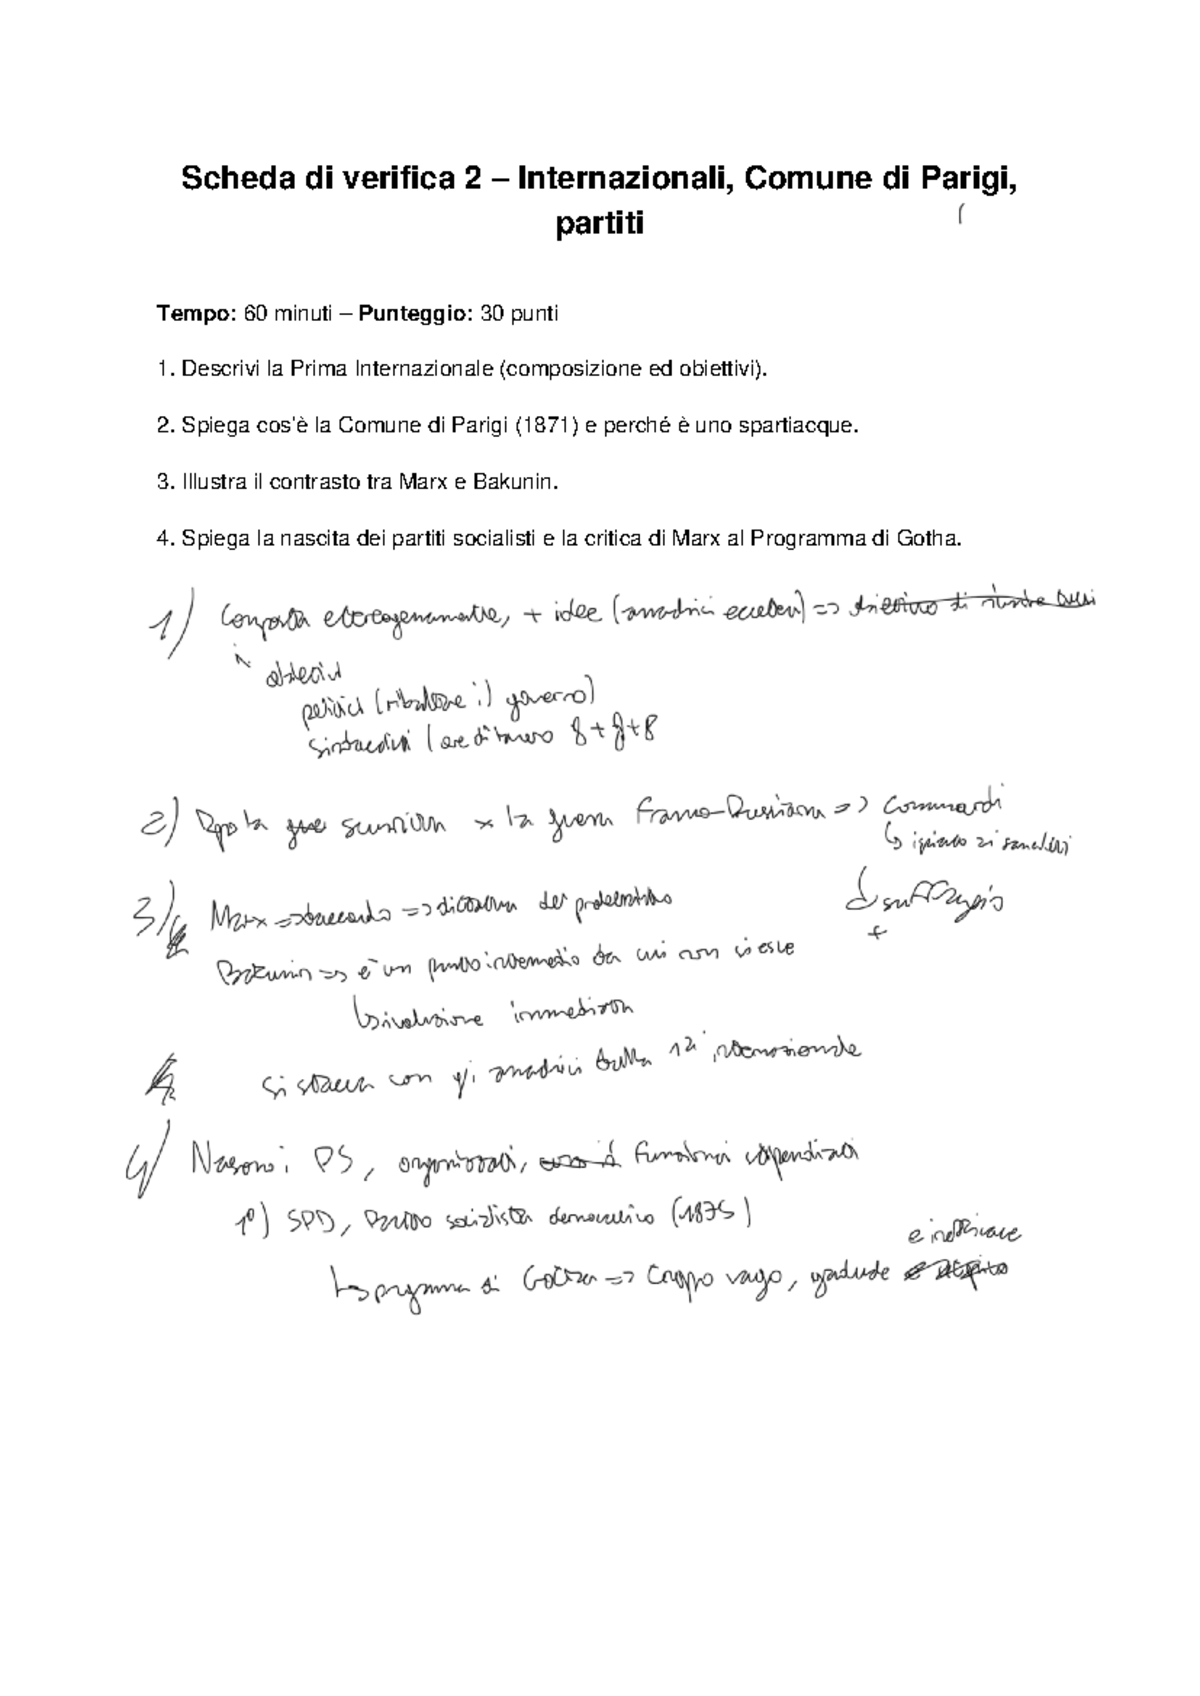 Scheda di verifica 2 – Internazionali, Comune di Parigi,
partiti
Tempo: 60 minuti – Punteggio: 30 punti
1. Descrivi la Prima Internazionale (composizione ed obiettivi).
2. Spiega cos'è la Comune di Parigi (1871) e perché è uno spartiacque.
3. Illustra il contrasto tra Marx e Bakunin.
4. Spiega la nascita dei partiti socialisti e la critica di Marx al Programma di Gotha.
1) Composta eterogeneamente, + idee (anarchici =>
obiettivi
politici (ribaltare il governo)
sindacali (ore di lavoro 8+8+8
2) Dopo la x la guerra Franco-Prussiana => Communardi
3) Marx => => dittatura del proletariato
suffragio
+
Bakunin => è un punto intermedio da cui non si esce
rivoluzione immediata
si stacca con gli anarchici dalla 1a internazionale
4) Nascono i PS, organizzati,
1°) SPD, Partito socialista democratico (1875)
e inefficace
programma di Gotha => troppo vago, graduale